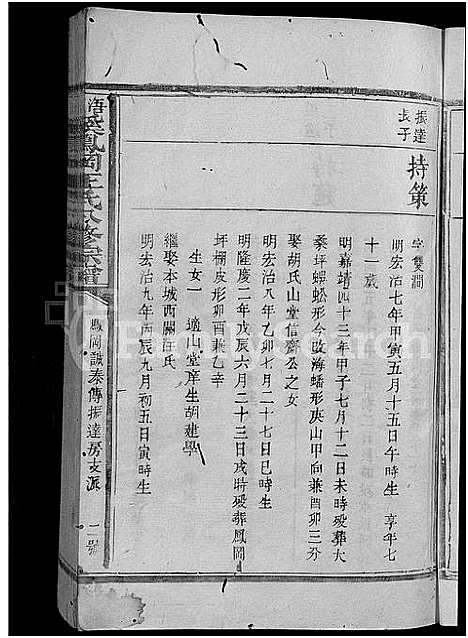 振達
長子
持策
字雙澗
明宏治七年甲寅五月十五日午時生 享年七
十一歲
明嘉靖四十三年甲子七月十二日未時歿葬大
桑坪蜈蚣形今改海蟠形庚山甲向兼酉卯三分
娶胡氏山堂信齋公之女
明宏治八年乙卯七月二十七日巳時生
明隆慶二年戊辰六月二十三日戌時歿葬鳳岡
坪棚皮形卯酉兼乙辛
生女一 適山堂庠生胡建學
繼娶本城西關汪氏
明宏治九年丙辰九月初五日寅時生
鳳岡王氏八修宗譜
鳳岡識秦傳振達房支派
二號